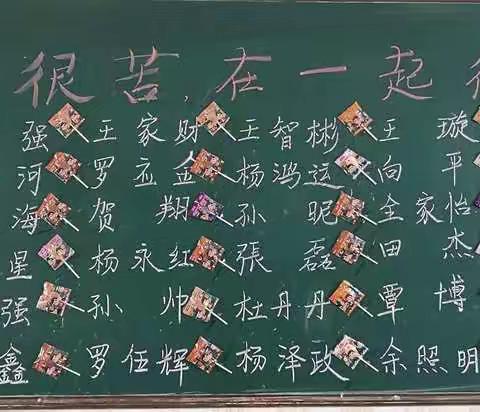 很苦,在一起很
强 王家财 王智彬 王璇
河 罗亚金 杨鸿运 向平
海 贺翔 孙昵 全家怡
星 杨永红 張磊 田杰
强 孙帅 杜丹丹 覃博
鑫 罗伍辉 杨泽政 余照明